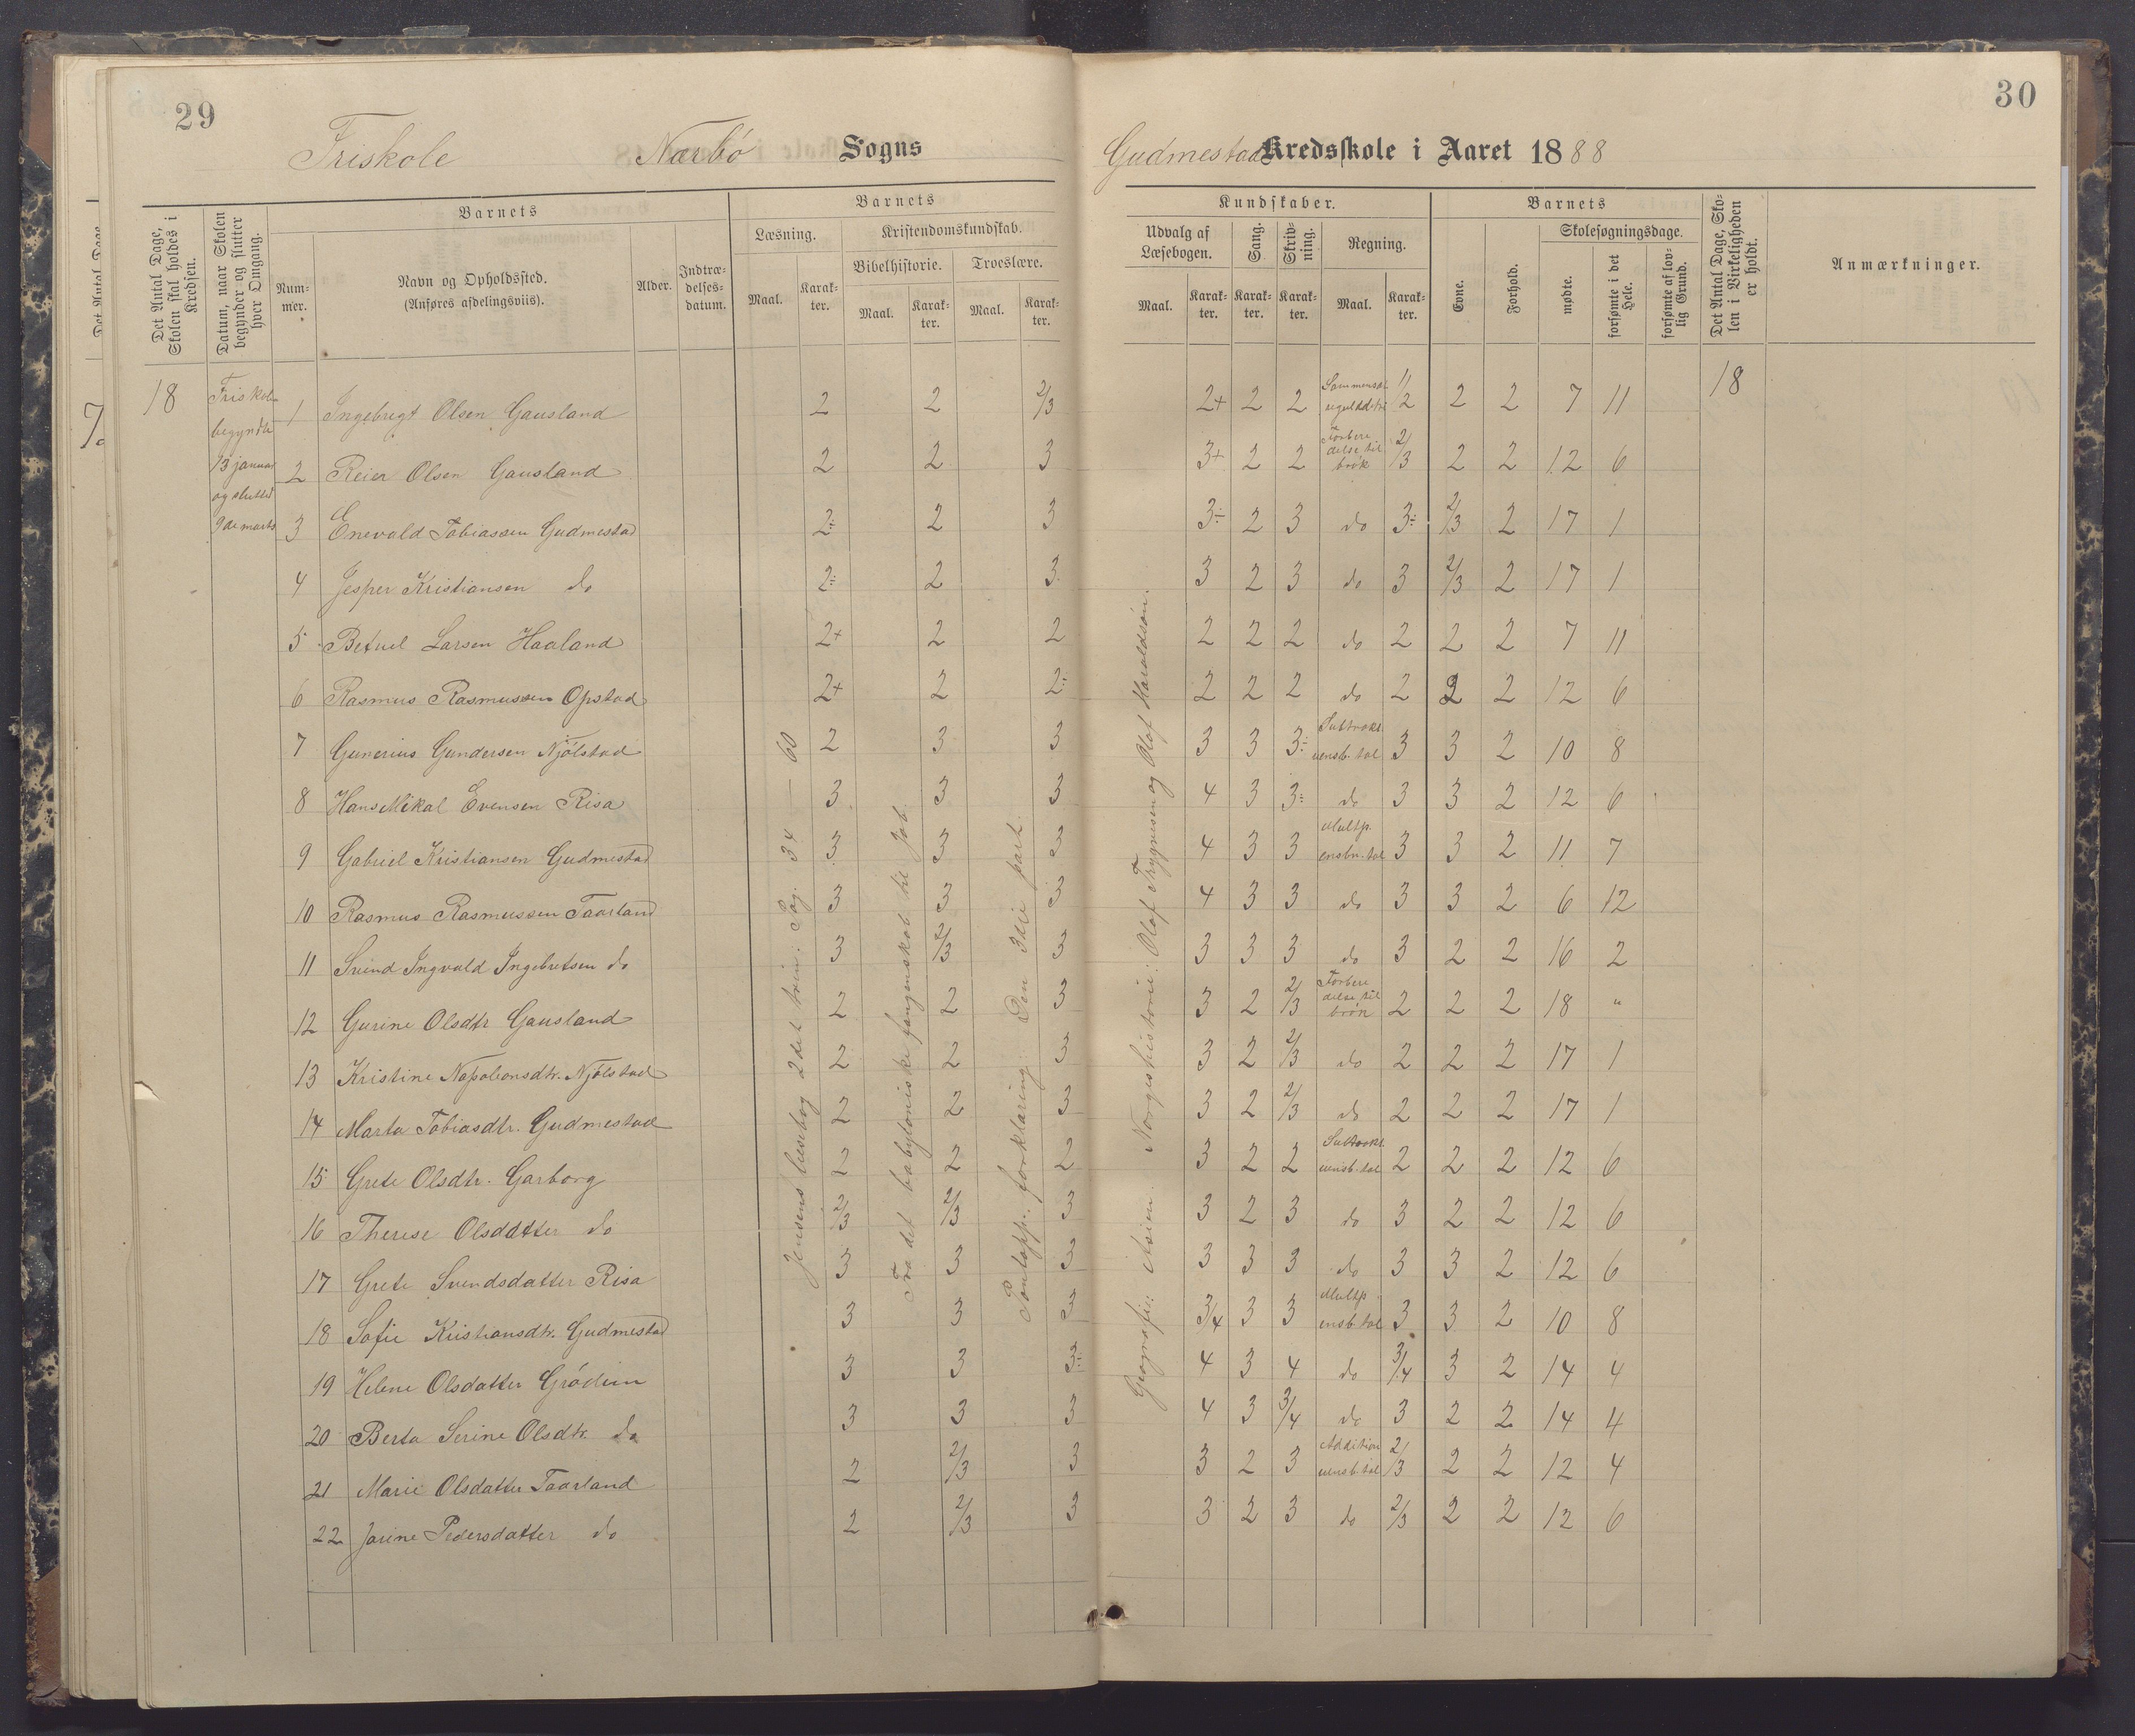 29
30
Friskole Nærbö Sogns Gudmestad Kredsskole i Aaret 1888
Det Antal Dage, Skolen skal holdes i Kredsen.
Datum, naar Skolen begynder og slutter hver Omgang.
Barnets
Nummer.
Navn og Opholdssted.
(Anføres afdelingsviis).
Alder.
Indtrædelsesdatum.
Barnets
Læsning.
Maal.
Karakter.
Kristendomskundskab.
Bibelhistorie.
Maal.
Karakter.
Troeslære.
Maal.
Karakter.
Kundskaber.
Udvalg af Læsebogen.
Maal.
Karakter.
Sang.
Karakter.
Skrivning.
Karakter.
Regning.
Maal.
Karakter.
Barnets
Evne.
Forhold.
Skolesøgningsdage.
mødte.
forsømte i det Hele.
forsømte af lovlig Grund.
Det Antal Dage, Skolen i Virkeligheden er holdt.
Anmærkninger.
18
Friskolen
begyndte
13 januar
og sluttet
9de marts
18
1 Ingebrigt Olsen Gausland 2 2 2/3 2+ 2 2 1/2 2 2 7 11
2 Reier Olsen Gausland 2 2 3 3+ 2 2 Forberedelse til brök 2/3 2 2 12 6
3 Enevald Tobiassen Gudmestad 2÷ 2 3 3÷ 2 3 do 3÷ 2/3 2 17 1
4 Jesper Kristiansen do 2÷ 2 3 3 2 3 do 3 2/3 2 17 1
5 Betuel Larsen Haaland 2+ 2 2 2 2 2 do 2 2 2 7 11
6 Rasmus Rasmussen Opstad 2+ 2 2÷ 2 2 2 do 2 2 2 12 6
7 Gunerius Gundersen Njölstad 2 3 3 3 3 3÷ Subtrakt. uensb. tal 3 3 2 10 8
8 Hans Mikal Evensen Risa 3 3 3 4 3 3÷ do 3 3 2 12 6
9 Gabriel Kristiansen Gudmestad 3 3 3 4 3 3 Multp. ensbn. tal 3 3 2 11 7
10 Rasmus Rasmussen Taarland 3 3 3 4 3 3 do 3 3 2 6 12
11 Svend Ingvald Ingebretsen do 3 2/3 3 3 3 3 do 3 2 2 16 2
12 Gurine Olsdtr Gausland 2 2 3 3 2 2/3 Forberedelse til brök 2 2 2 18 "
13 Kristine Napolionsdtr. Njölstad 2 2 3 3 2 2/3 do 2 2 2 17 1
14 Marta Tobiasdtr. Gudmestad 2 2 3 3 2 2/3 do 2 2 2 17 1
15 Grete Olsdtr. Garborg 2 2 2 3 2 2 Subtrakt. uensb. tal 2 2 2 12 6
16 Therese Olsdatter do 2/3 2/3 3 3 2 3 do 3 2 2 12 6
17 Grete Svendsdatter Risa 3 3 3 3 3 3 do 3 3 2 12 6
18 Sofie Kristiansdtr. Gudmestad 3 3 3 3/4 3 3 Multp. ensb. tal 3 3 2 10 8
19 Helene Olsdatter Grödem 3 3 3÷ 4 3 4 do 3/4 3 2 14 4
20 Berta Serine Olsdtr. do 3 3 3 4 3 3/4 do 3 2 2 14 4
21 Marie Olsdatter Taarland 2 2/3 3 3 2 3 Addition uensb. tal 2/3 2 2 12 4
22 Jorine Pedersdatter do 2 2/3 3 3 2 3 do 2/3 2 2 12 6
Jensens læsebog 2det trin: Pag. 34 — 60
Fra det babyloniske fangenskab til Job
Pontopp. forklaring: Den 3die part.
Geografi: Asien. Norgeshistorie: Olaf Trygvesen og Olaf Haraldsön.